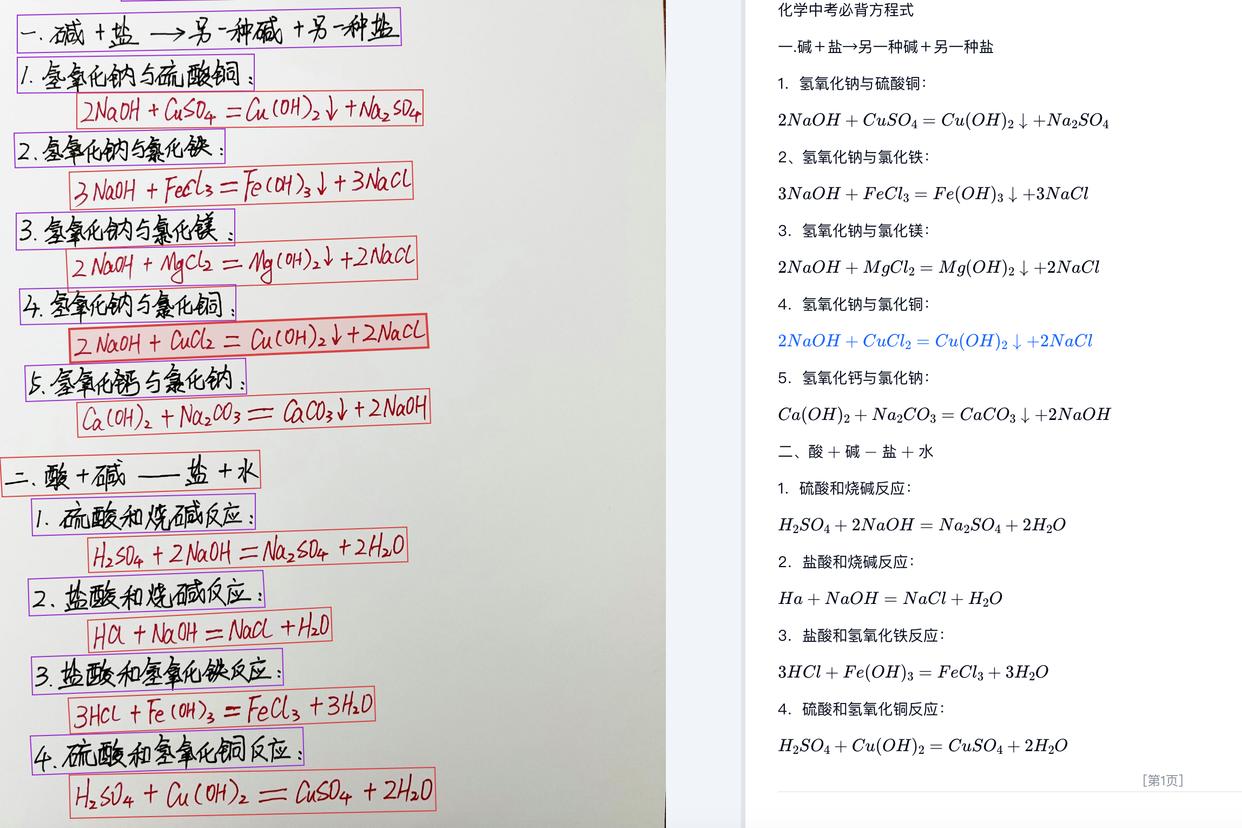 一.碱+盐→另一种碱+另一种盐
1.氢氧化钠与硫酸铜:
2NaOH+CuSO₄=Cu(OH)₂↓+Na₂SO₄
2.氢氧化钠与氯化铁:
3NaOH+FeCl₃=Fe(OH)₃↓+3NaCl
3.氢氧化钠与氯化镁:
2NaOH+MgCl₂=Mg(OH)₂↓+2NaCl
4.氢氧化钠与氯化铜:
2NaOH+CuCl₂=Cu(OH)₂↓+2NaCl
5.氢氧化钙与氯化钠:
Ca(OH)₂+Na₂CO₃=CaCO₃↓+2NaOH
二.酸+碱——盐+水
1.硫酸和烧碱反应:
H₂SO₄+2NaOH=Na₂SO₄+2H₂O
2.盐酸和烧碱反应:
HCl+NaOH=NaCl+H₂O
3.盐酸和氢氧化铁反应:
3HCl+Fe(OH)₃=FeCl₃+3H₂O
4.硫酸和氢氧化铜反应:
H₂SO₄+Cu(OH)₂=CuSO₄+2H₂O
化学中考必背方程式
一.碱+盐→另一种碱+另一种盐
1. 氢氧化钠与硫酸铜:
2NaOH+CuSO₄=Cu(OH)₂↓+Na₂SO₄
2、氢氧化钠与氯化铁:
3NaOH+FeCl₃=Fe(OH)₃↓+3NaCl
3. 氢氧化钠与氯化镁:
2NaOH+MgCl₂=Mg(OH)₂↓+2NaCl
4. 氢氧化钠与氯化铜:
2NaOH+CuCl₂=Cu(OH)₂↓+2NaCl
5. 氢氧化钙与氯化钠:
Ca(OH)₂+Na₂CO₃=CaCO₃↓+2NaOH
二、酸+碱−盐+水
1. 硫酸和烧碱反应:
H₂SO₄+2NaOH=Na₂SO₄+2H₂O
2. 盐酸和烧碱反应:
Ha+NaOH=NaCl+H₂O
3. 盐酸和氢氧化铁反应:
3HCl+Fe(OH)₃=FeCl₃+3H₂O
4. 硫酸和氢氧化铜反应:
H₂SO₄+Cu(OH)₂=CuSO₄+2H₂O
[第1页]